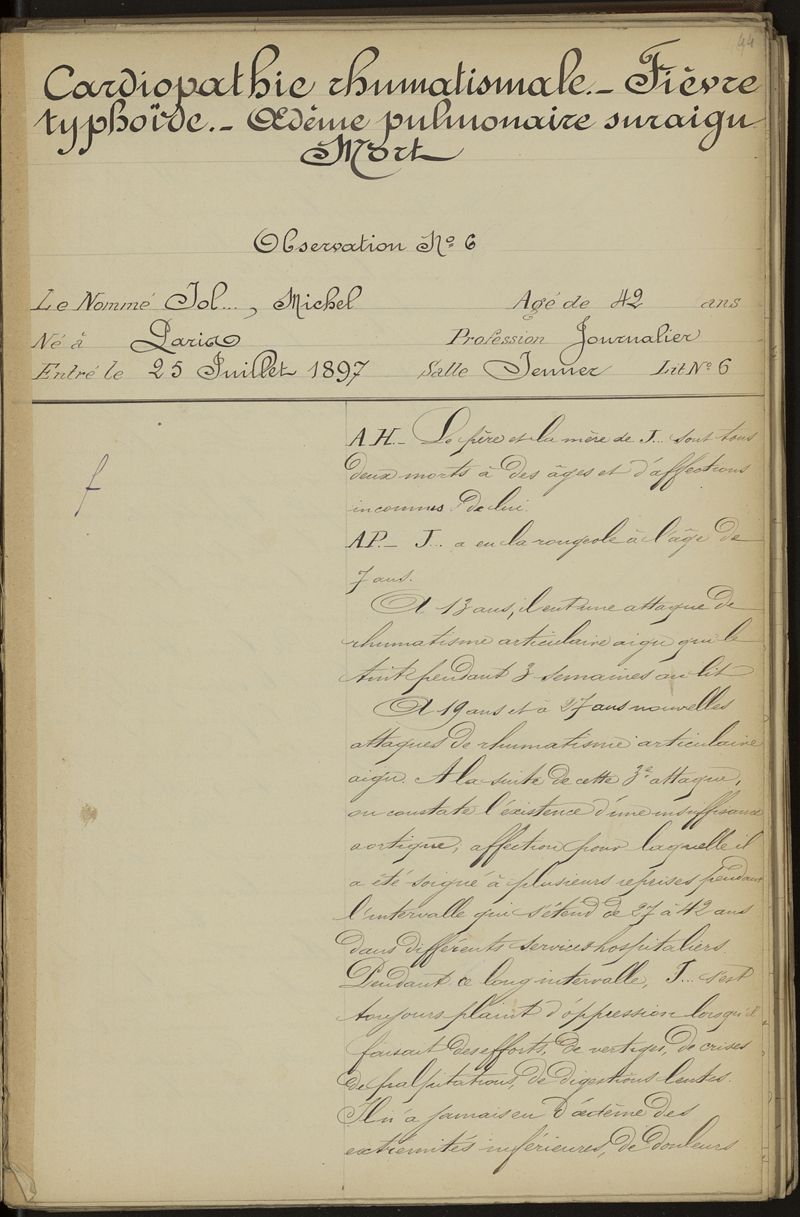 44
Cardiopathie rhumatismale. – Fièvre
typhoïde. – Œdème pulmonaire suraigu
Mort
Observation No 6
Le Nommé Jol..., Michel Agé de 42 ans
Né à Paris Profession Journalier
Entré le 25 Juillet 1897 Salle Jenner Lit No 6
A.H. – Le père et la mère de J... sont tous
deux morts à des âges et d'affections
inconnus de lui.
A.P. – J... a eu la rougeole à l'âge de
7 ans.
A 13 ans, il eut une attaque de
rhumatisme articulaire aigu qui le
tint pendant 3 semaines au lit
A 19 ans et à 27 ans nouvelles
attaques de rhumatisme articulaire
aigu. A la suite de cette 3e attaque,
on constate l'éxistence d'une insuffisance
aortique, affection pour laquelle il
a été soigné à plusieurs reprises pendant
l'intervalle qui s'étend de 27 à 42 ans
dans différents services hospitaliers.
Pendant ce long intervalle, J... s'est
toujours plaint d'oppression lorsqu'il
faisait des efforts, de vertiges, de crises
de palpitations, de digestions lentes.
Il n'a jamais eu d'œdème des
extrémités inférieures, de douleurs